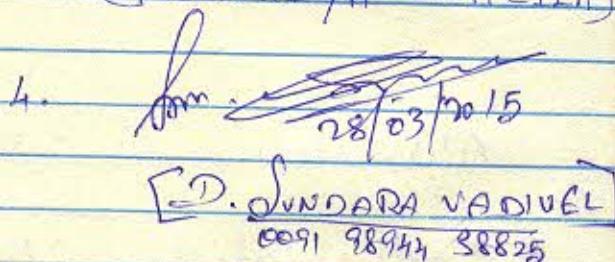 4.
28/03/2015
[D. SUNDARA VADIVEL]
0091 98944 38825